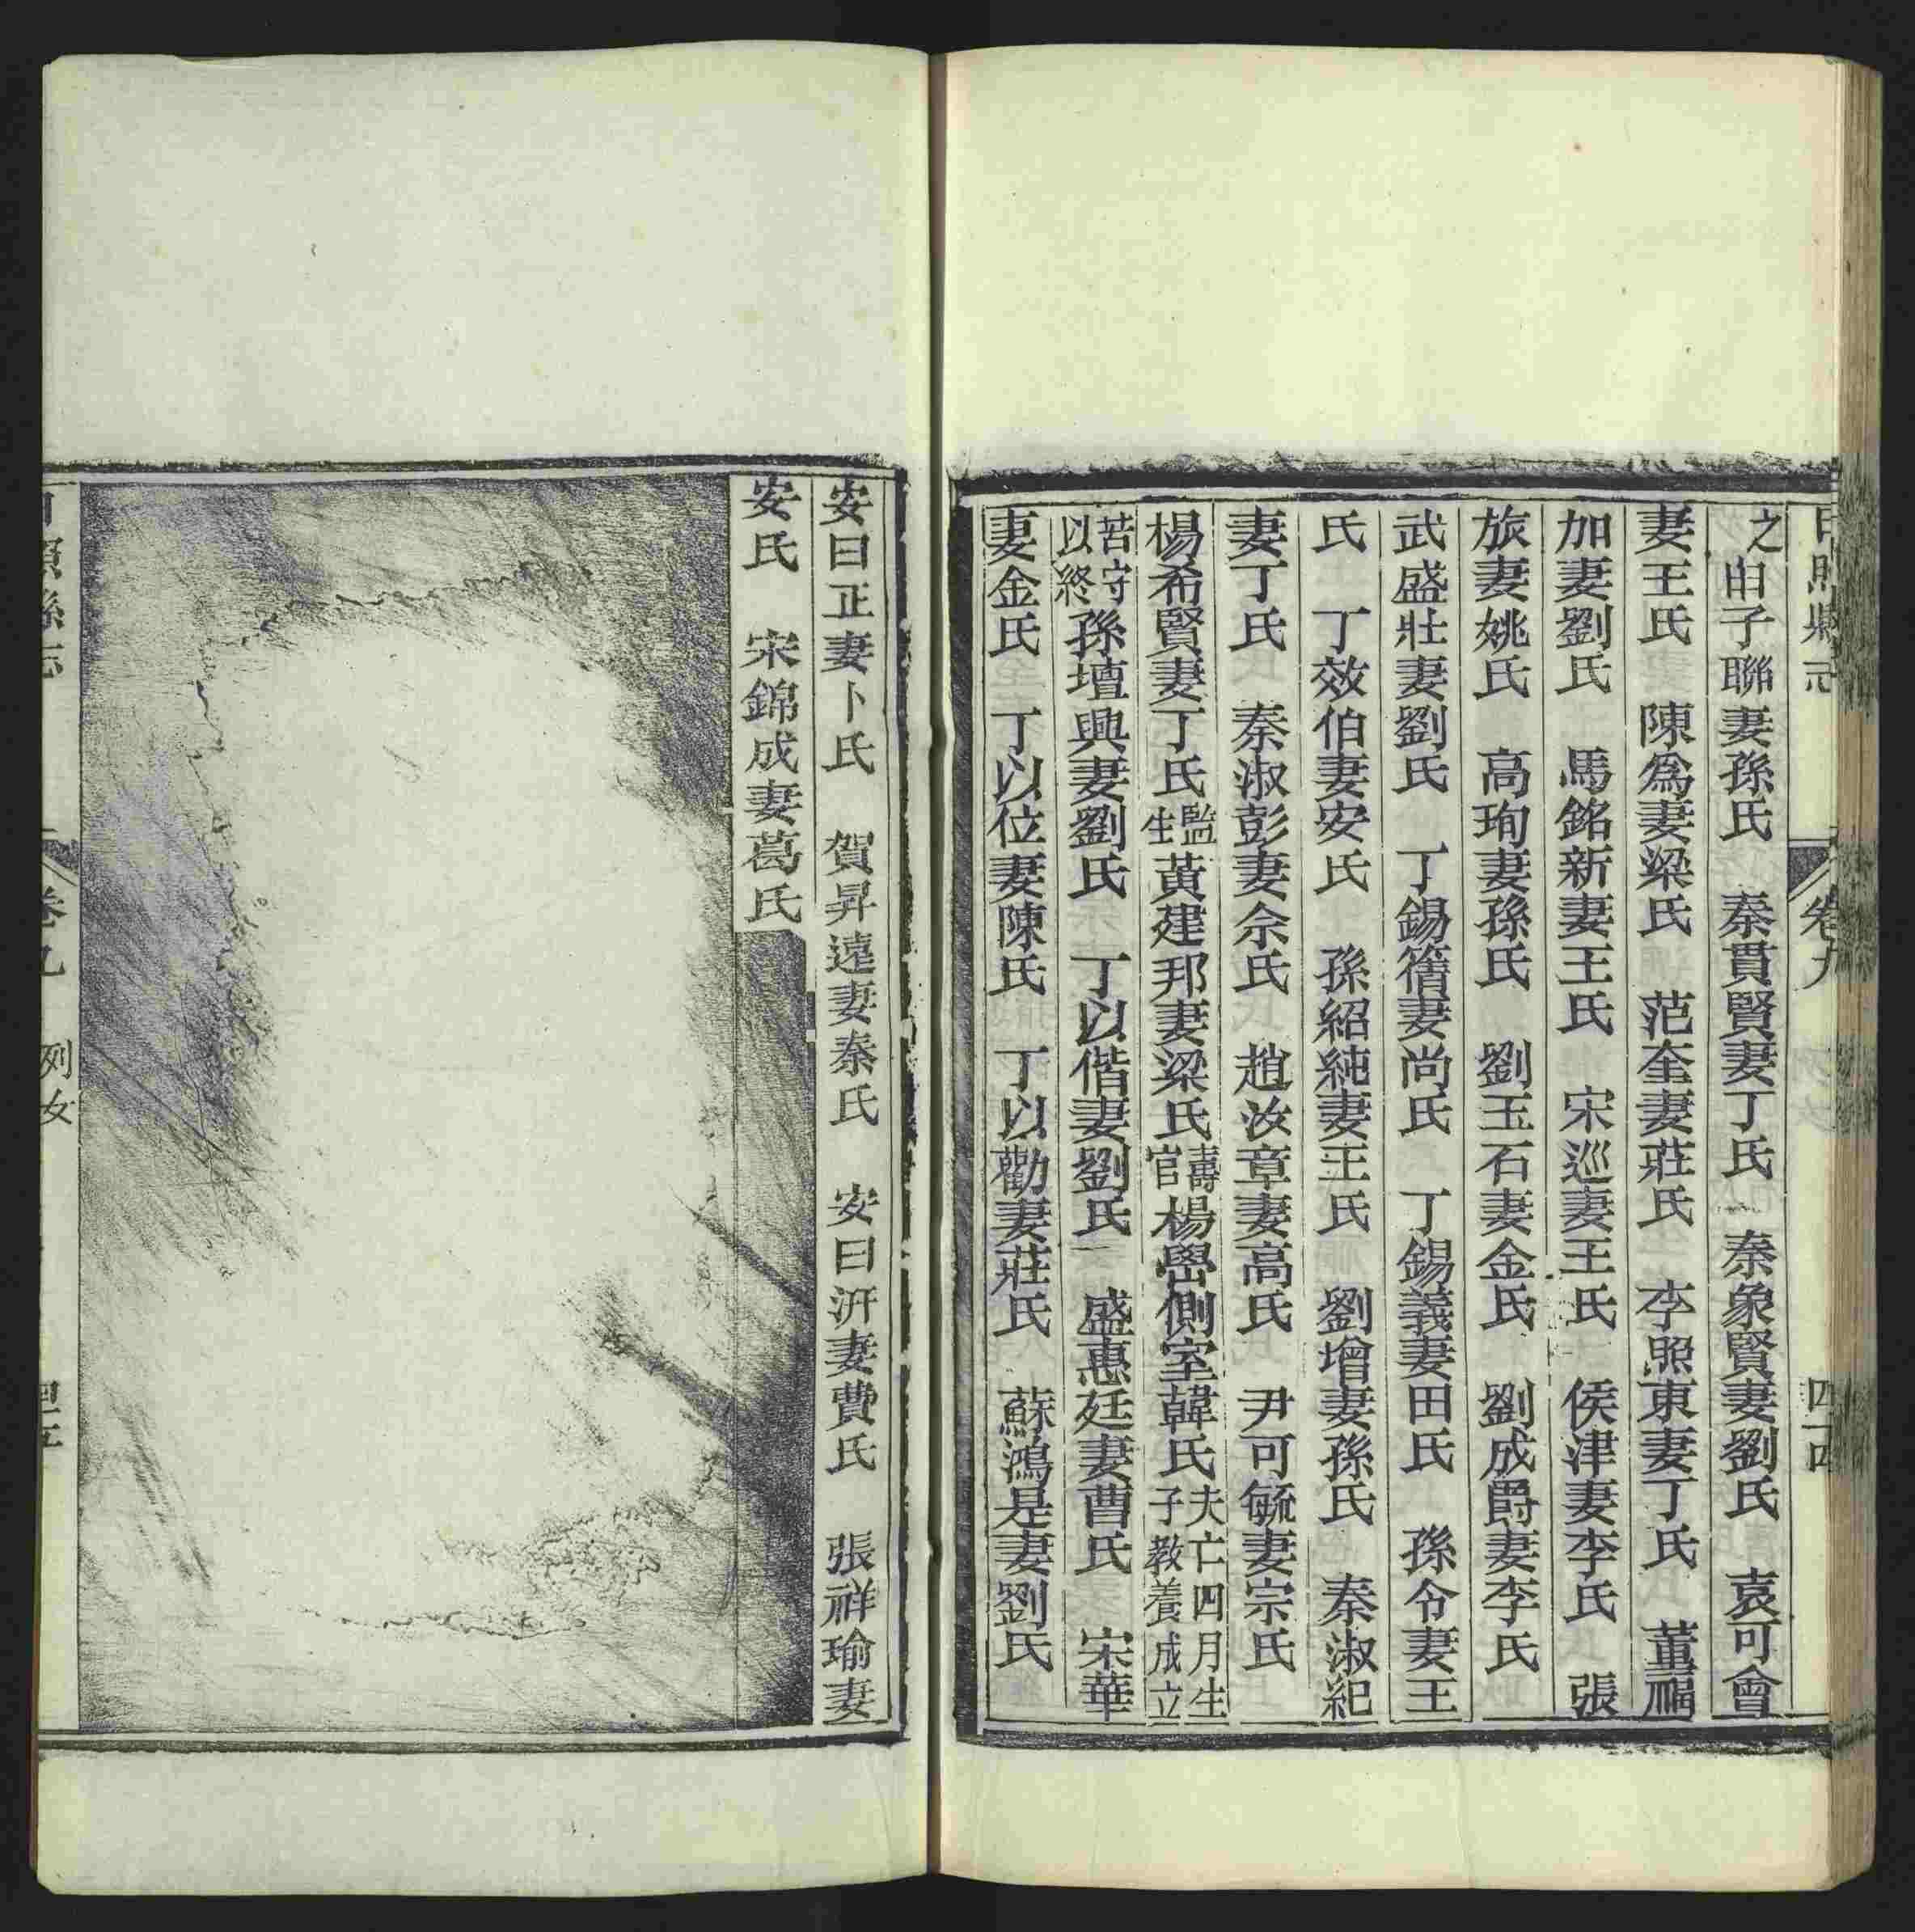 日照縣志 卷九 四十四
之由子聯妻孫氏 秦貫賢妻丁氏 秦象賢妻劉氏 袁可會
妻王氏 陳為妻梁氏 范奎妻莊氏 李照東妻丁氏 董福
加妻劉氏 馬銘新妻王氏 宋巡妻王氏 侯津妻李氏 張
旅妻姚氏 高珣妻孫氏 劉玉石妻金氏 劉成爵妻李氏
武盛壯妻劉氏 丁錫簉妻尚氏 丁錫義妻田氏 孫令妻王
氏 丁效伯妻安氏 孫紹純妻王氏 劉增妻孫氏 秦淑紀
妻丁氏 秦淑彭妻佘氏 趙汝章妻高氏 尹可毓妻宗氏
楊希賢妻丁氏監生黃建邦妻梁氏壽官楊嶨側室韓氏夫亡四月生子教養成立
苦守以終孫壇興妻劉氏 丁以偕妻劉氏 盛惠廷妻曹氏 宋華
妻金氏 丁以位妻陳氏 丁以勸妻莊氏 蘇鴻是妻劉氏
安曰正妻卜氏 賀昇遠妻秦氏 安曰汧妻費氏 張祥瑜妻
安氏 宋錦成妻葛氏
日照縣志 卷九 列女 四十五